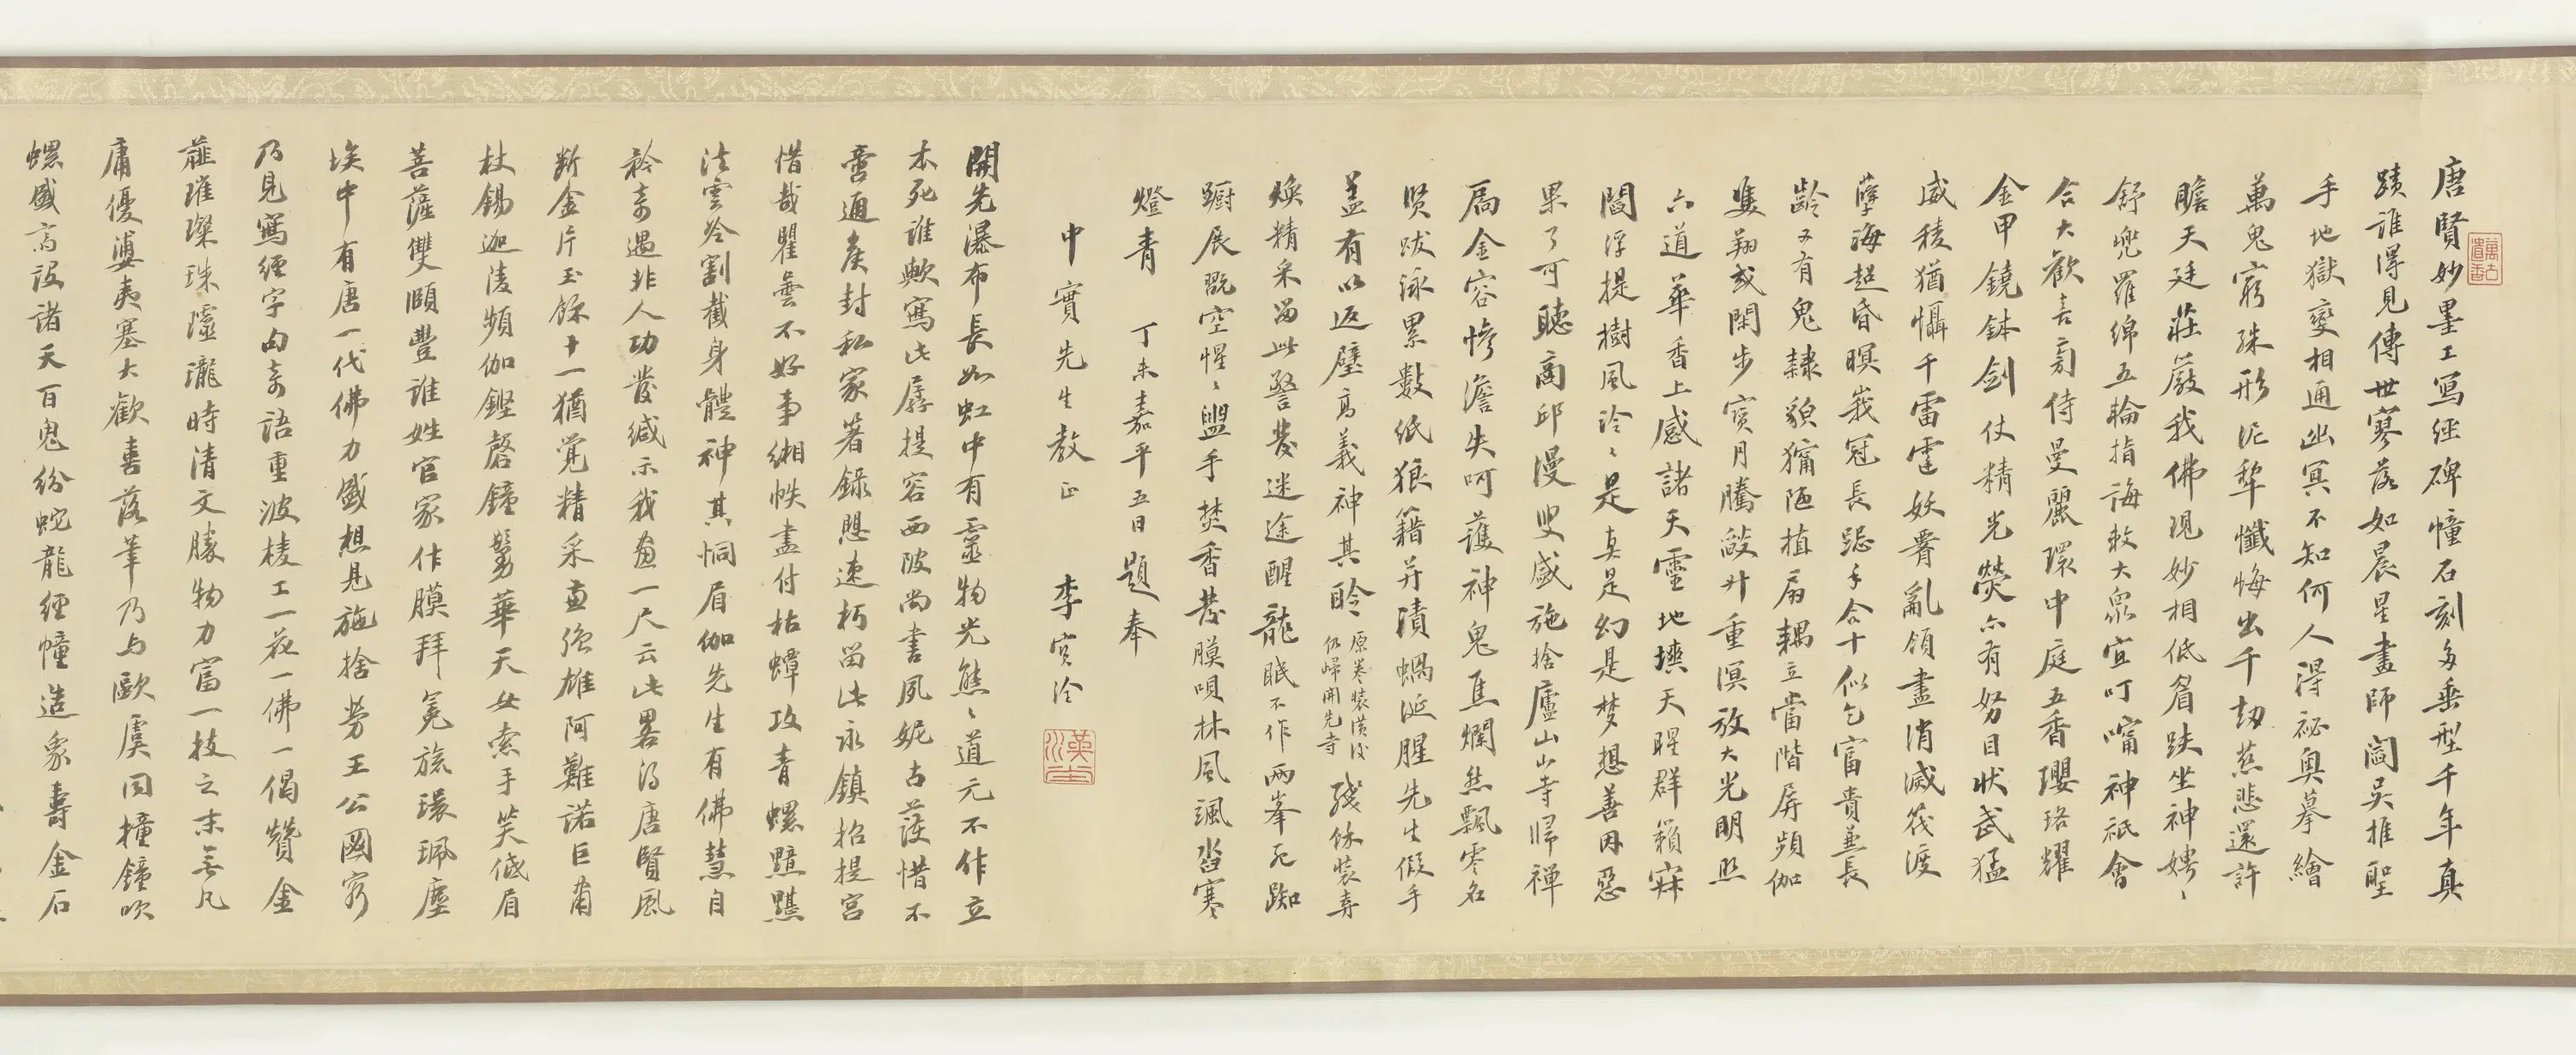 唐賢妙墨工寫經碑幢石刻多垂型千年真
蹟誰得見傳世寥落如晨星畫師閻吳推聖
手地獄變相通幽冥不知何人得祕奧摹繪
萬鬼窮殊形泥犂懺悔出千劫慈悲還許
瞻天廷莊嚴我佛現妙相低眉趺坐神娉〻
舒兜羅綿五輪指誨敕大眾宜叮嚀神祇會
合大歡喜剃侍曼麗環中庭五香瓔珞耀
金甲鐃鉢劍仗精光熒亦有努目狀武猛
威稜猶懾千雷霆妖霧亂領盡消滅筏渡
孽海超昏暝峩冠長跽手合十似乞富貴兼長
齡又有鬼隸貌獰陋植扇耦立當階屏頻伽
隻翔或閑步寳月騰敲升重溟放大光明照
六道華香上感諸天靈地壙天暒群籟寂
閻浮提樹風泠〻是真是幻是梦想善因惡
果了可聽商邱漫叟盛施捨廬山山寺歸禅
扃金容慘澹失呵護神鬼焦爛然飄零名
賢跋泳累數紙狼籍并漬蝸涎腥先生假手
蓋有以返璧高義神其聆原卷裝潢後仍歸開先寺殘休裝弆
煥精采留此警發迷途醒龍眠不作兩峯死踟
蹰展翫空惺〻盥手焚香發膜唄林風颯沓寒
燈青 丁未嘉平五日題奉
中實先生教正 李宣泠
開先瀑布長如虹中有靈物光熊〻道元不作立
本死誰歟寫此孱提容西陂尚書夙妮古護惜不
啻通矦封私家著錄懸速朽留此永鎮招提宮
惜哉瞿曇不好事緗帙盡付枯蟫攻青螺黯黮
法雲冷割截身軆神其恫眉伽先生有佛慧自
矜奇遇非人功發緘示我畫一尺云此畧得唐賢風
斷金片玉餘十一猶覺精采畫強雄阿難諾巨甯
杖錫迦陵頻伽鏗磬鐘鬘華天女索手笑低眉
菩薩雙頤豐誰姓官家作膜拜冕旒環珮塵
埃中有唐一代佛力盛想見施捨勞王公國窮
乃見寫經字向奇語重波棱工一花一佛一偈贊金
薤璀璨珠瓏瓏時清文勝物力富一技之末無凡
庸優婆夷塞大歡喜落筆乃与歐虞同撞鐘吹
螺盛高設諸天百鬼紛蛇龍經幢造象壽金石